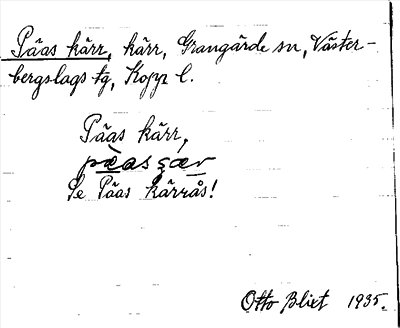 Päas kärr, kärr, Grangärde sn, Väster-
bergslags tg, Kopp l.
Päas kärr,
pæ̀as çær
Se Päas kärrås!
Otto Blixt 1935.